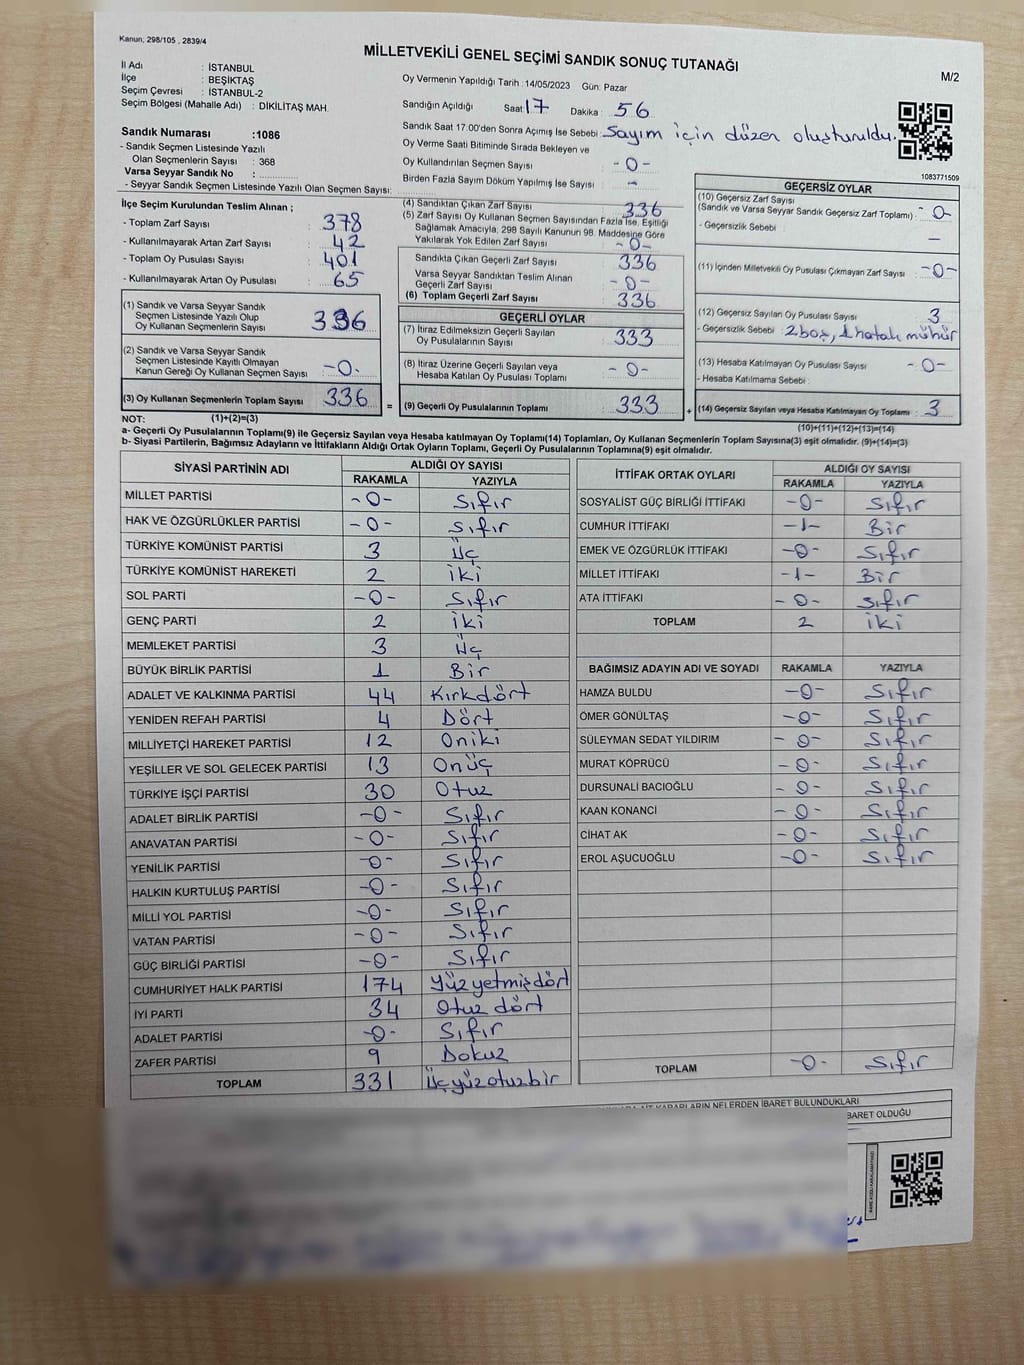 Kanun; 298/105 , 2839/4
MİLLETVEKİLİ GENEL SEÇİMİ SANDIK SONUÇ TUTANAĞI
M/2
İl Adı : İSTANBUL
İlçe : BEŞİKTAŞ
Seçim Çevresi : İSTANBUL-2
Seçim Bölgesi (Mahalle Adı) : DİKİLİTAŞ MAH.
Sandık Numarası :1086
- Sandık Seçmen Listesinde Yazılı
Olan Seçmenlerin Sayısı : 368
Varsa Seyyar Sandık No :
- Seyyar Sandık Seçmen Listesinde Yazılı Olan Seçmen Sayısı:
Oy Vermenin Yapıldığı Tarih :14/05/2023 Gün: Pazar
Sandığın Açıldığı Saat: 17 Dakika : 56
Sandık Saat 17:00'den Sonra Açımış İse Sebebi: Sayım için düzen oluşturuldu.
Oy Verme Saati Bitiminde Sırada Bekleyen ve
Oy Kullandırılan Seçmen Sayısı : -0-
Birden Fazla Sayım Döküm Yapılmış İse Sayısı : -
1083771509
İlçe Seçim Kurulundan Teslim Alınan ;
- Toplam Zarf Sayısı : 378
- Kullanılmayarak Artan Zarf Sayısı : 42
- Toplam Oy Pusulası Sayısı : 401
- Kullanılmayarak Artan Oy Pusulası : 65
(1) Sandık ve Varsa Seyyar Sandık
Seçmen Listesinde Yazılı Olup
Oy Kullanan Seçmenlerin Sayısı : 336
(2) Sandık ve Varsa Seyyar Sandık
Seçmen Listesinde Kayıtlı Olmayan
Kanun Gereği Oy Kullanan Seçmen Sayısı : -0-
(3) Oy Kullanan Seçmenlerin Toplam Sayısı : 336
(1)+(2)=(3)
(4) Sandıktan Çıkan Zarf Sayısı : 336
(5) Zarf Sayısı Oy Kullanan Seçmen Sayısından Fazla İse, Eşitliği
Sağlamak Amacıyla, 298 Sayılı Kanunun 98. Maddesine Göre
Yakılarak Yok Edilen Zarf Sayısı : -0-
Sandıkta Çıkan Geçerli Zarf Sayısı : 336
Varsa Seyyar Sandıktan Teslim Alınan
Geçerli Zarf Sayısı : -0-
(6) Toplam Geçerli Zarf Sayısı : 336
GEÇERLİ OYLAR
(7) İtiraz Edilmeksizin Geçerli Sayılan
Oy Pusulalarının Sayısı : 333
(8) İtiraz Üzerine Geçerli Sayılan veya
Hesaba Katılan Oy Pusulası Toplamı : -0-
= (9) Geçerli Oy Pusulalarının Toplamı : 333
GEÇERSİZ OYLAR
(10) Geçersiz Zarf Sayısı
(Sandık ve Varsa Seyyar Sandık Geçersiz Zarf Toplamı) : -0-
- Geçersizlik Sebebi : -
(11) İçinden Milletvekili Oy Pusulası Çıkmayan Zarf Sayısı : -0-
(12) Geçersiz Sayılan Oy Pusulası Sayısı : 3
- Geçersizlik Sebebi : 2 boş, 1 hatalı mühür
(13) Hesaba Katılmayan Oy Pusulası Sayısı : -0-
- Hesaba Katılmama Sebebi :
+ (14) Geçersiz Sayılan veya Hesaba Katılmayan Oy Toplamı : 3
(10)+(11)+(12)+(13)=(14)
NOT:
a- Geçerli Oy Pusulalarının Toplamı(9) ile Geçersiz Sayılan veya Hesaba katılmayan Oy Toplamı(14) Toplamları, Oy Kullanan Seçmenlerin Toplam Sayısına(3) eşit olmalıdır. (9)+(14)=(3)
b- Siyasi Partilerin, Bağımsız Adayların ve İttifakların Aldığı Ortak Oyların Toplamı, Geçerli Oy Pusulalarının Toplamına(9) eşit olmalıdır.
SİYASİ PARTİNİN ADI ALDIĞI OY SAYISI
RAKAMLA YAZIYLA
MİLLET PARTİSİ -0- Sıfır
HAK VE ÖZGÜRLÜKLER PARTİSİ -0- Sıfır
TÜRKİYE KOMÜNİST PARTİSİ 3 Üç
TÜRKİYE KOMÜNİST HAREKETİ 2 iki
SOL PARTİ -0- Sıfır
GENÇ PARTİ 2 iki
MEMLEKET PARTİSİ 3 Üç
BÜYÜK BİRLİK PARTİSİ 1 Bir
ADALET VE KALKINMA PARTİSİ 44 Kırkdört
YENİDEN REFAH PARTİSİ 4 Dört
MİLLİYETÇİ HAREKET PARTİSİ 12 Oniki
YEŞİLLER VE SOL GELECEK PARTİSİ 13 Onüç
TÜRKİYE İŞÇİ PARTİSİ 30 Otuz
ADALET BİRLİK PARTİSİ -0- Sıfır
ANAVATAN PARTİSİ -0- Sıfır
YENİLİK PARTİSİ -0- Sıfır
HALKIN KURTULUŞ PARTİSİ -0- Sıfır
MİLLİ YOL PARTİSİ -0- Sıfır
VATAN PARTİSİ -0- Sıfır
GÜÇ BİRLİĞİ PARTİSİ -0- Sıfır
CUMHURİYET HALK PARTİSİ 174 Yüzyetmişdört
İYİ PARTİ 34 Otuz dört
ADALET PARTİSİ -0- Sıfır
ZAFER PARTİSİ 9 Dokuz
TOPLAM 331 Üçyüzotuzbir
İTTİFAK ORTAK OYLARI ALDIĞI OY SAYISI
RAKAMLA YAZIYLA
SOSYALİST GÜÇ BİRLİĞİ İTTİFAKI -0- Sıfır
CUMHUR İTTİFAKI -1- Bir
EMEK VE ÖZGÜRLÜK İTTİFAKI -0- Sıfır
MİLLET İTTİFAKI -1- Bir
ATA İTTİFAKI -0- Sıfır
TOPLAM 2 iki
BAĞIMSIZ ADAYIN ADI VE SOYADI RAKAMLA YAZIYLA
HAMZA BULDU -0- Sıfır
ÖMER GÖNÜLTAŞ -0- Sıfır
SÜLEYMAN SEDAT YILDIRIM -0- Sıfır
MURAT KÖPRÜCÜ -0- Sıfır
DURSUNALİ BACIOĞLU -0- Sıfır
KAAN KONANCİ -0- Sıfır
CİHAT AK -0- Sıfır
EROL AŞUCUOĞLU -0- Sıfır
TOPLAM -0- Sıfır
KARARLARIN NELERDEN İBARET BULUNDUKLARI
BARET OLDUĞU